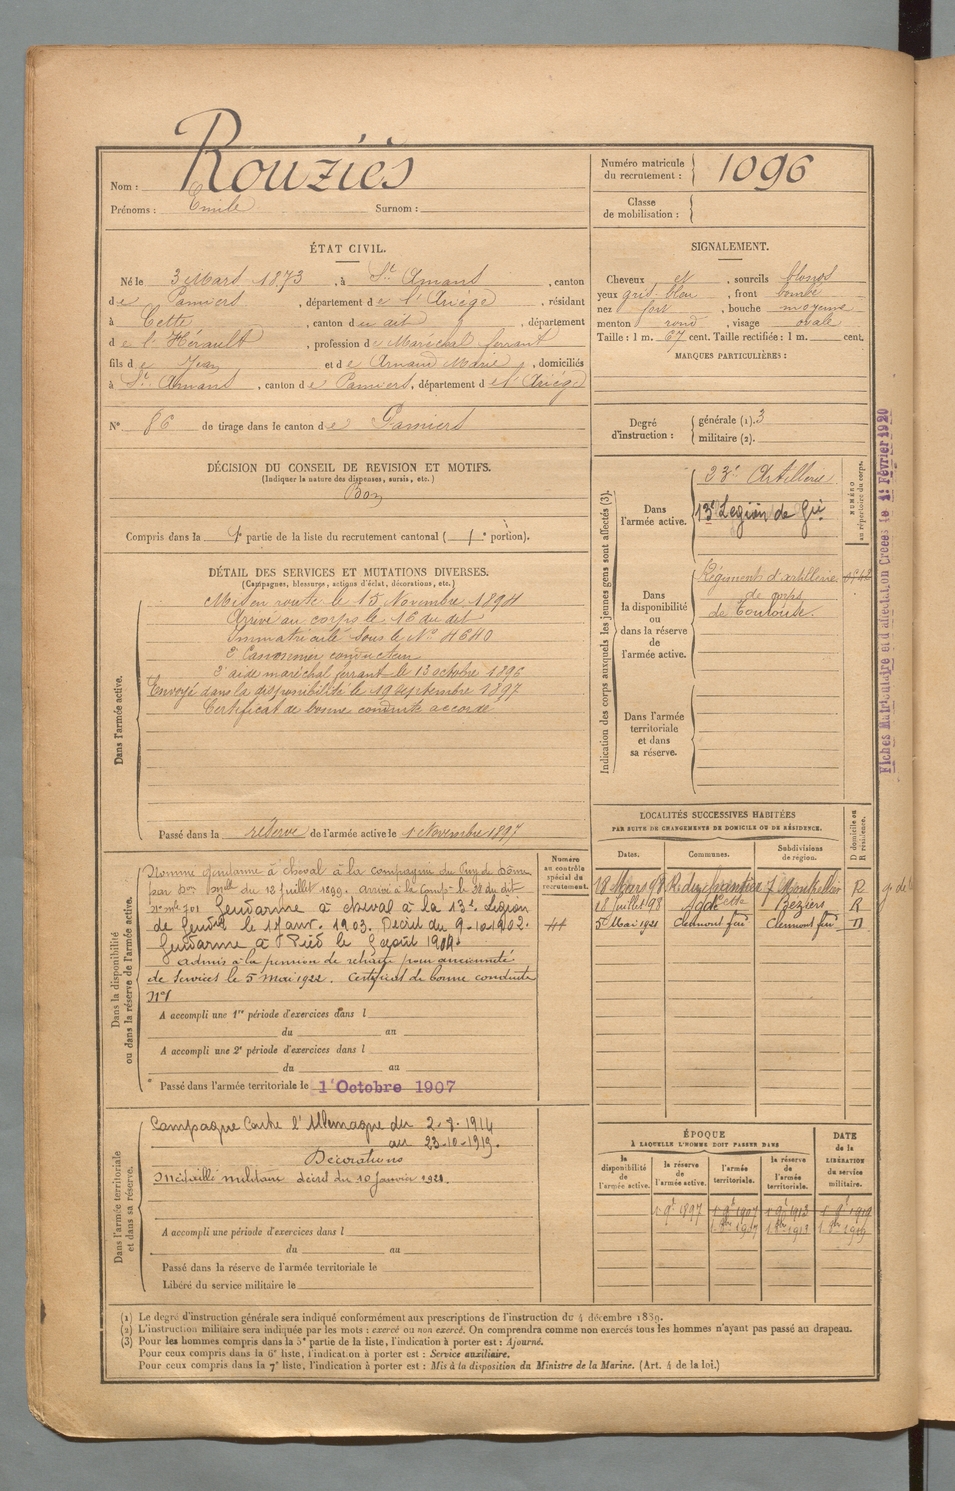 Nom : Rouziès
Prénoms : Emile Surnom :
Numéro matricule
du recrutement : 1096
Classe
de mobilisation :
ÉTAT CIVIL.
Né le 3 Mars 1873, à St Amans, canton
de Pamiers, département de l'Ariège, résidant
à Cette, canton du dit, département
de l'Hérault, profession de Maréchal ferrant
fils de Jean et de Arnaud Marie, domiciliés
à St Amans, canton de Pamiers, département de l'Ariège
N° 86 de tirage dans le canton de Pamiers
SIGNALEMENT.
Cheveux et, sourcils blonds
yeux gris bleu, front bombé
nez fort, bouche moyenne
menton rond, visage ovale
Taille : 1 m. 67 cent. Taille rectifiée : 1 m. cent.
MARQUES PARTICULIÈRES :
Degré
d'instruction :
générale (1). 3
militaire (2).
DÉCISION DU CONSEIL DE REVISION ET MOTIFS.
(Indiquer la nature des dispenses, sursis, etc.)
Bon
Compris dans la 1e partie de la liste du recrutement cantonal ( 1e portion).
DÉTAIL DES SERVICES ET MUTATIONS DIVERSES.
(Campagnes, blessures, actions d'éclat, décorations, etc.)
Dans l'armée active.
Mis en route le 15 Novembre 1894
Arrivé au corps le 16 du dit
Immatriculé sous le N° 4640
2e Canonnier conducteur
2e aide maréchal ferrant le 13 octobre 1896
Envoyé dans la disponibilité le 19 septembre 1897
Certificat de bonne conduite accordé
Passé dans la réserve de l'armée active le 1 Novembre 1897
Indication des corps auxquels les jeunes gens sont affectés (3).
NUMÉRO
au répertoire du corps.
Dans
l'armée active.
23e Artillerie
13e Legion de Gie
Dans
la disponibilité
ou
dans la réserve
de
l'armée active.
Régiments d'artillerie
de corps
de Toulouse.
Dans l'armée
territoriale
et dans
sa réserve.
Fiches Matriculaire et d'affectation Créées le 1er Février 1920
LOCALITÉS SUCCESSIVES HABITÉES
PAR SUITE DE CHANGEMENTS DE DOMICILE OU DE RÉSIDENCE.
D domicile ou
R résidence.
Dates. Communes. Subdivisions
de région.
18 Mars 98 Montpellier R
18 Juillet 98 Agde Cette Béziers R
5 Mai 1921 Clermont Fd Clermont Fd D
Dans la disponibilité
ou dans la réserve de l'armée active.
Numéro
au contrôle
spécial du
recrutement.
Nommé gendarme à cheval à la compagnie du Puy de Dôme
par Don melle du 12 juillet 1899. arrivé à la Comp. le 31 du dit
N° mle 701 Gendarme à cheval à la 13e Légion
de Gendie le 17 anv. 1903. Décret du 9-10-1902.
Gendarme à Pied le août 1904.
Admis à la pension de retraite pour ancienneté
de Services le 5 mai 1922. Certificat de bonne conduite
N° 1
A accompli une 1re période d'exercices dans l
du au
A accompli une 2e période d'exercices dans l
du au
Passé dans l'armée territoriale le 1er Octobre 1907
Dans l'armée territoriale
et dans sa réserve.
Campagne Contre l'Allemagne du 2-8-1914
au 23-10-1919.
Décorations
Médaille militaire décret du 10 Janvier 1921.
A accompli une période d'exercices dans l
du au
Passé dans la réserve de l'armée territoriale le
Libéré du service militaire le
ÉPOQUE
À LAQUELLE L'HOMME DOIT PASSER DANS
DATE
de la
LIBÉRATION
du service
militaire.
la
disponibilité
de
l'armée active.
la réserve
de
l'armée active.
l'armée
territoriale.
la réserve
de
l'armée
territoriale.
1 9e 1897 1 9e 1907 1 9e 1913 1 9e 1919
(1) Le degré d'instruction générale sera indiqué conformément aux prescriptions de l'instruction du 4 décembre 1889.
(2) L'instruction militaire sera indiquée par les mots : exercé ou non exercé. On comprendra comme non exercés tous les hommes n'ayant pas passé au drapeau.
(3) Pour les hommes compris dans la 5e partie de la liste, l'indication à porter est : Ajourné.
Pour ceux compris dans la 6e liste, l'indication à porter est : Service auxiliaire.
Pour ceux compris dans la 7e liste, l'indication à porter est : Mis à la disposition du Ministre de la Marine. (Art. 4 de la loi.)